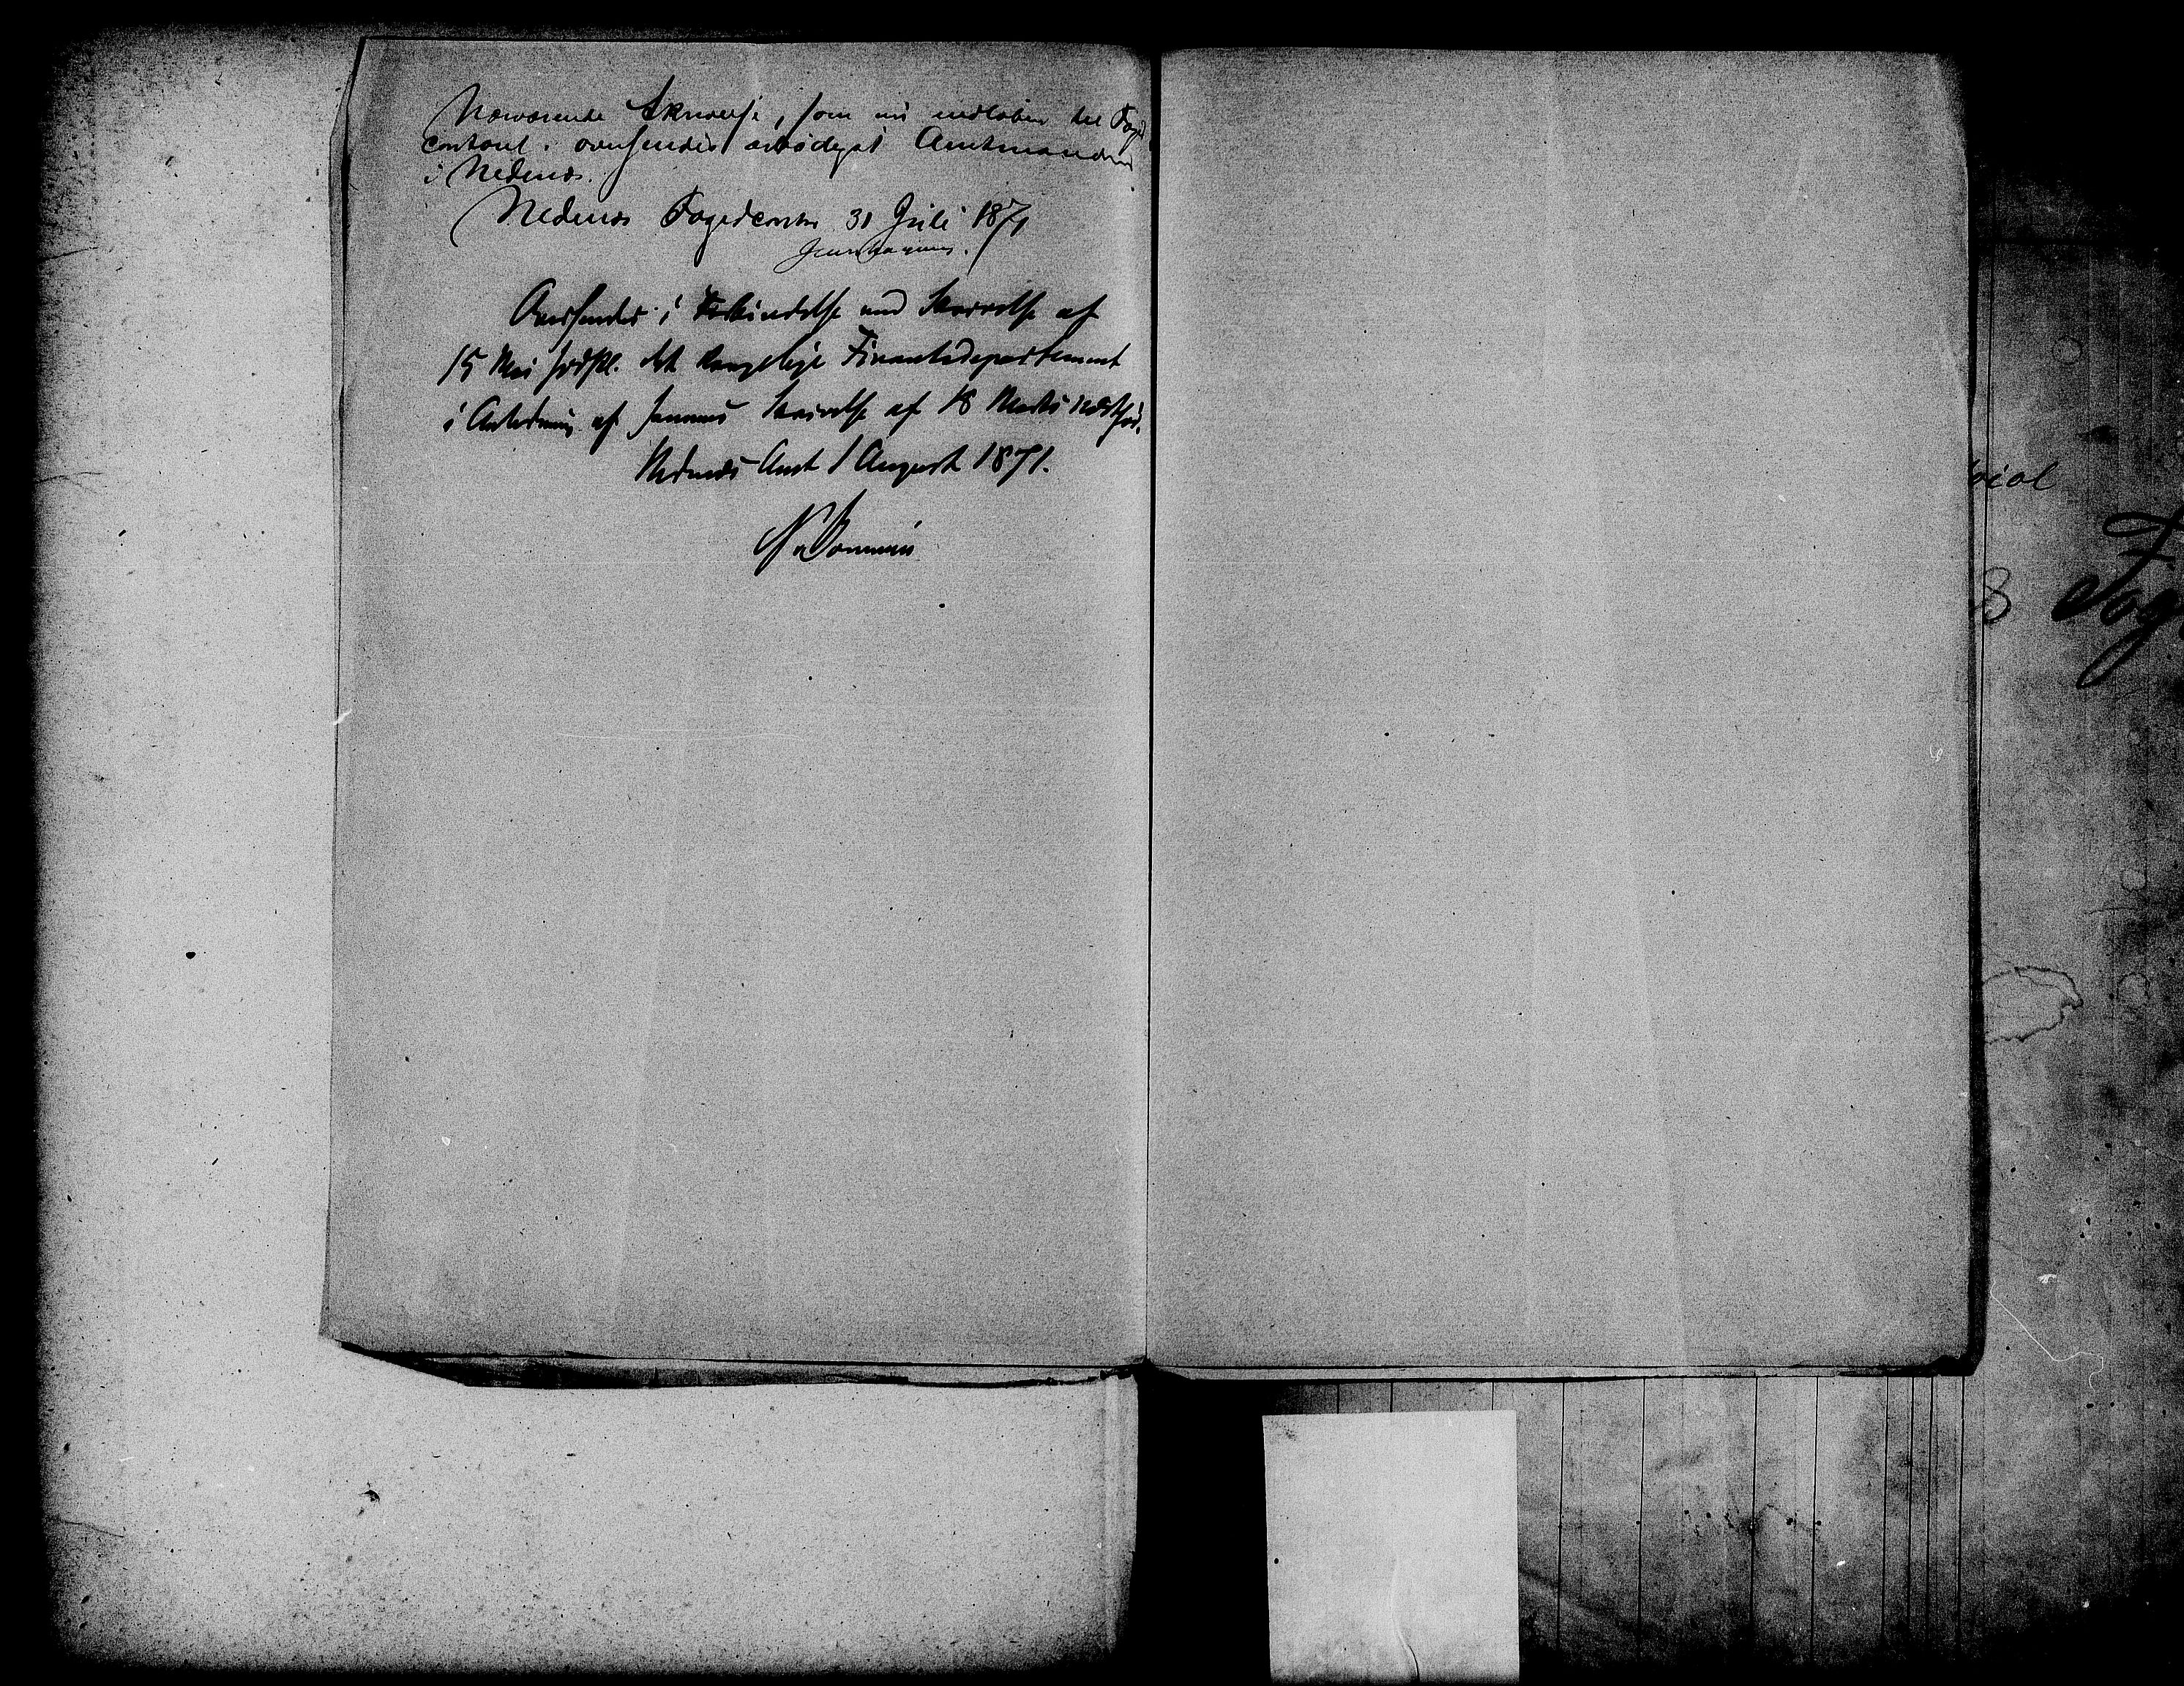 Nærværende Skrivelse, som nu indløben til Foged
contoret, oversendes ærbødigst Amtmanden
i Nedenæs.
Nedenæs Fogedcontor 31 Juli 1871
Oversendes i Forbindelse med Skrivelse af
15 Mai sidstl. det kongelige Finantsdepartement
i Anledning af sammes Skrivelse af 18 Marts næstfør.
Nedenæs Amt 1 August 1871.